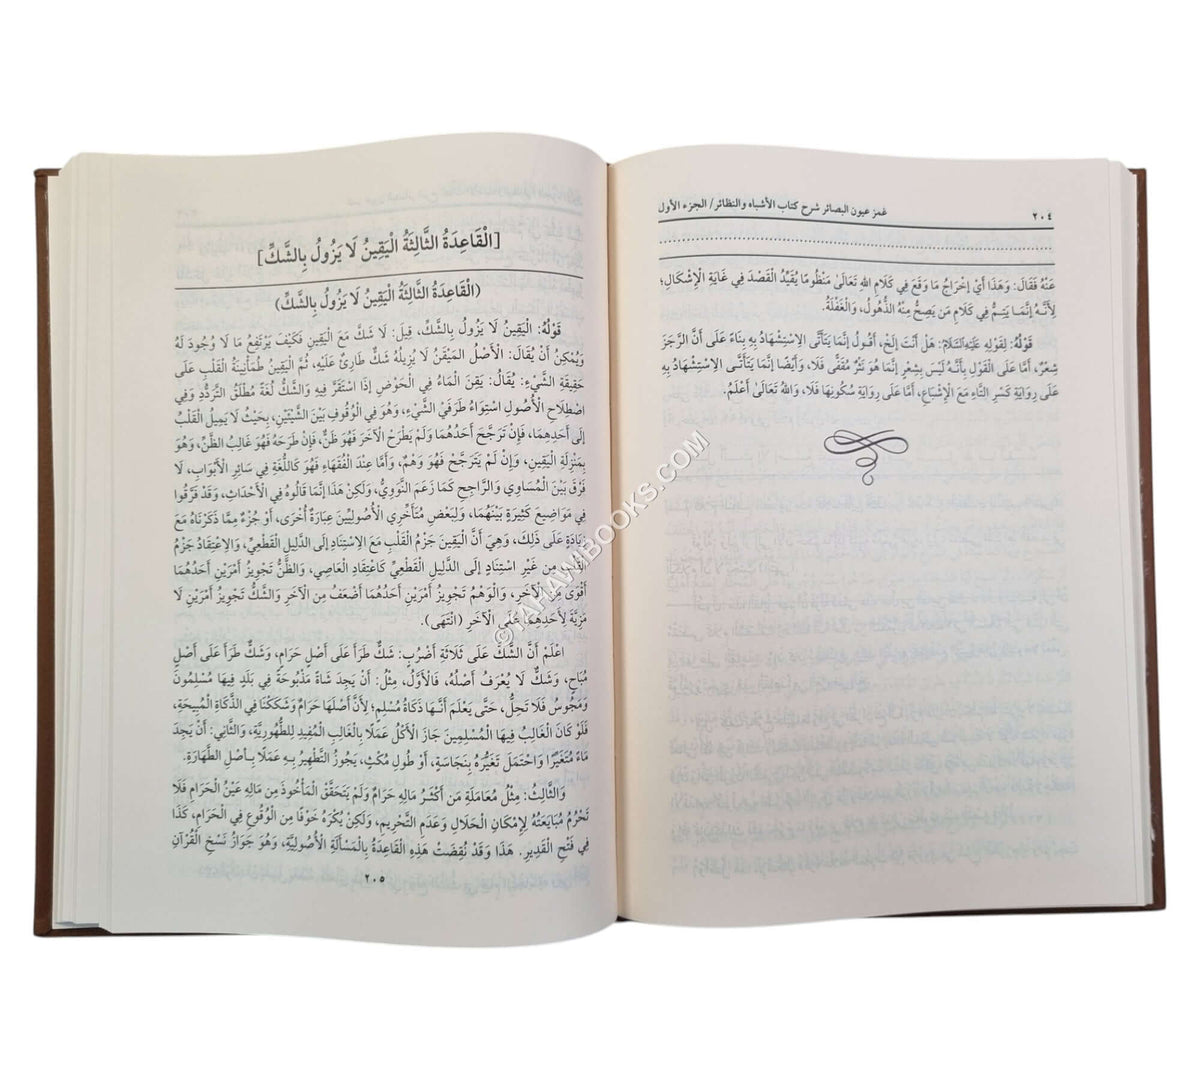 ٢٠٤
غمز عيون البصائر شرح كتاب الأشباه والنظائر/ الجزء الأول
عَنْهُ فَقَالَ: وَهَذَا أَيْ إخْرَاجُ مَا وَقَعَ فِي كَلَامِ اللهِ تَعَالَىٰ مَنْظُومًا يُقَيِّدُ الْقَصْدَ فِي غَايَةِ الْإِشْكَالِ؛
لِأَنَّهُ إنَّمَا يَتِمُّ فِي كَلَامِ مَن يَصِحُّ مِنْهُ الذُّهُولُ، وَالْغَفْلَةُ.
قَوْلُهُ: لِقَوْلِهِ عَلَيْهِ السَّلَامُ: هَلْ أَنْتَ إلَخْ، أَقُولُ إنَّمَا يَتَأَتَّى الِاسْتِشْهَادُ بِهِ بِنَاءً عَلَى أَنَّ الرَّجَزَ
شِعْرٌ، أَمَّا عَلَى الْقَوْلِ بِأَنَّهُ لَيْسَ بِشِعْرٍ إنَّمَا هُوَ نَثْرٌ مُقَفًّى فَلَا، وَأَيْضًا إنَّمَا يَتَأَتَّى الِاسْتِشْهَادُ بِهِ
عَلَى رِوَايَةِ كَسْرِ التَّاءِ مَعَ الْإِشْبَاعِ، أَمَّا عَلَى رِوَايَةِ سُكُونِهَا فَلَا، وَاللهُ تَعَالَىٰ أَعْلَمُ.
[الْقَاعِدَةُ الثَّالِثَةُ الْيَقِينُ لَا يَزُولُ بِالشَّكِّ]
(الْقَاعِدَةُ الثَّالِثَةُ الْيَقِينُ لَا يَزُولُ بِالشَّكِّ)
قَوْلُهُ: الْيَقِينُ لَا يَزُولُ بِالشَّكِّ، قِيلَ: لَا شَكَّ مَعَ الْيَقِينِ فَكَيْفَ يَرْتَفِعُ مَا لَا وُجُودَ لَهُ
وَيُمْكِنُ أَنْ يُقَالَ: الْأَصْلُ الْمَيْقَنُ لَا يُزِيلُهُ شَكٌّ طَارِئٌ عَلَيْهِ، ثُمَّ الْيَقِينُ طُمَأْنِينَةُ الْقَلْبِ عَلَى
حَقِيقَةِ الشَّيْءِ: يُقَالُ: يَقَنَ الْمَاءُ فِي الْحَوْضِ إذَا اسْتَقَرَّ فِيهِ وَالشَّكُّ لُغَةً مُطْلَقُ التَّرَدُّدِ وَفِي
اصْطِلَاحِ الْأُصُولِ اسْتِوَاءُ طَرَفَيْ الشَّيْءِ، وَهُوَ فِي الْوُقُوفِ بَيْنَ الشَّيْئَيْنِ، بِحَيْثُ لَا يَمِيلُ الْقَلْبُ
إلَى أَحَدِهِمَا، فَإِنْ تَرَجَّحَ أَحَدُهُمَا وَلَمْ يَطْرَحْ الْآخَرَ فَهُوَ ظَنٌّ، فَإِنْ طَرَحَهُ فَهُوَ غَالِبُ الظَّنِّ، وَهُوَ
بِمَنْزِلَةِ الْيَقِينِ، وَإِنْ لَمْ يَتَرَجَّحْ فَهُوَ وَهْمٌ، وَأَمَّا عِنْدَ الْفُقَهَاءِ فَهُوَ كَاللُّغَةِ فِي سَائِرِ الْأَبْوَابِ، لَا
فَرْقَ بَيْنَ الْمُسَاوِي وَالرَّاجِحِ كَمَا زَعَمَ النَّوَوِيُّ، وَلَكِنْ هَذَا إنَّمَا قَالُوهُ فِي الْأَحْدَاثِ، وَقَدْ فَرَّقُوا
فِي مَوَاضِيعَ كَثِيرَةٍ بَيْنَهُمَا، وَلِبَعْضِ مُتَأَخِّرِي الْأُصُولِيِّينَ عِبَارَةٌ أُخْرَى، أَوْ جُزْءٌ مِمَّا ذَكَرْنَاهُ مَعَ
زِيَادَةٍ عَلَى ذَلِكَ، وَهِيَ أَنَّ الْيَقِينَ جَزْمُ الْقَلْبِ مَعَ الِاسْتِنَادِ إلَى الدَّلِيلِ الْقَطْعِيِّ، وَالِاعْتِقَادُ جَزْمُ
الْقَلْبِ مِنْ غَيْرِ اسْتِنَادٍ إلَى الدَّلِيلِ الْقَطْعِيِّ كَاعْتِقَادِ الْعَاصِي، وَالظَّنُّ تَجْوِيزُ أَمْرَيْنِ أَحَدُهُمَا
أَقْوَى مِنْ الْآخَرِ، وَالْوَهْمُ تَجْوِيزُ أَمْرَيْنِ أَحَدُهُمَا أَضْعَفُ مِنْ الْآخَرِ وَالشَّكُّ تَجْوِيزُ أَمْرَيْنِ لَا
مَزِيَّةَ لِأَحَدِهِمَا عَلَى الْآخَرِ (انْتَهَى).
اعْلَمْ أَنَّ الشَّكَّ عَلَى ثَلَاثَةِ أَضْرُبٍ: شَكٌّ طَرَأَ عَلَى أَصْلٍ حَرَامٍ، وَشَكٌّ طَرَأَ عَلَى أَصْلٍ
مُبَاحٍ، وَشَكٌّ لَا يُعْرَفُ أَصْلُهُ، فَالْأَوَّلُ، مِثْلُ: أَنْ يَجِدَ شَاةً مَذْبُوحَةً فِي بَلَدٍ فِيهَا مُسْلِمُونَ
وَمَجُوسٌ فَلَا تَحِلُّ، حَتَّى يَعْلَمَ أَنَّهَا ذَكَاةُ مُسْلِمٍ؛ لِأَنَّ أَصْلَهَا حَرَامٌ وَشَكَكْنَا فِي الذَّكَاةِ الْمُبِيحَةِ،
فَلَوْ كَانَ الْغَالِبُ فِيهَا الْمُسْلِمِينَ جَازَ الْأَكْلُ عَمَلًا بِالْغَالِبِ الْمُفِيدِ لِلطُّهُورِيَّةِ، وَالثَّانِي: أَنْ يَجِدَ
مَاءً مُتَغَيِّرًا وَاحْتَمَلَ تَغَيُّرُهُ بِنَجَاسَةٍ، أَوْ طُولِ مُكْثٍ، يَجُوزُ التَّطْهِيرُ بِهِ عَمَلًا بِأَصْلِ الطَّهَارَةِ.
وَالثَّالِثُ: مِثْلُ مُعَامَلَةِ مَنْ أَكْثَرُ مَالِهِ حَرَامٌ وَلَمْ يَتَحَقَّقْ الْمَأْخُوذَ مِنْ مَالِهِ عَيْنُ الْحَرَامِ فَلَا
تَحْرُمُ مُبَايَعَتُهُ لِإِمْكَانِ الْحَلَالِ وَعَدَمِ التَّحْرِيمِ، وَلَكِنْ يُكْرَهُ خَوْفًا مِنْ الْوُقُوعِ فِي الْحَرَامِ، كَذَا
فِي فَتْحِ الْقَدِيرِ. هَذَا وَقَدْ نُقِضَتْ هَذِهِ الْقَاعِدَةُ بِالْمَسْأَلَةِ الْأُصُولِيَّةِ، وَهُوَ جَوَازُ نَسْخِ الْقُرْآنِ
٢٠٥
©TAHAWIBOOKS.COM